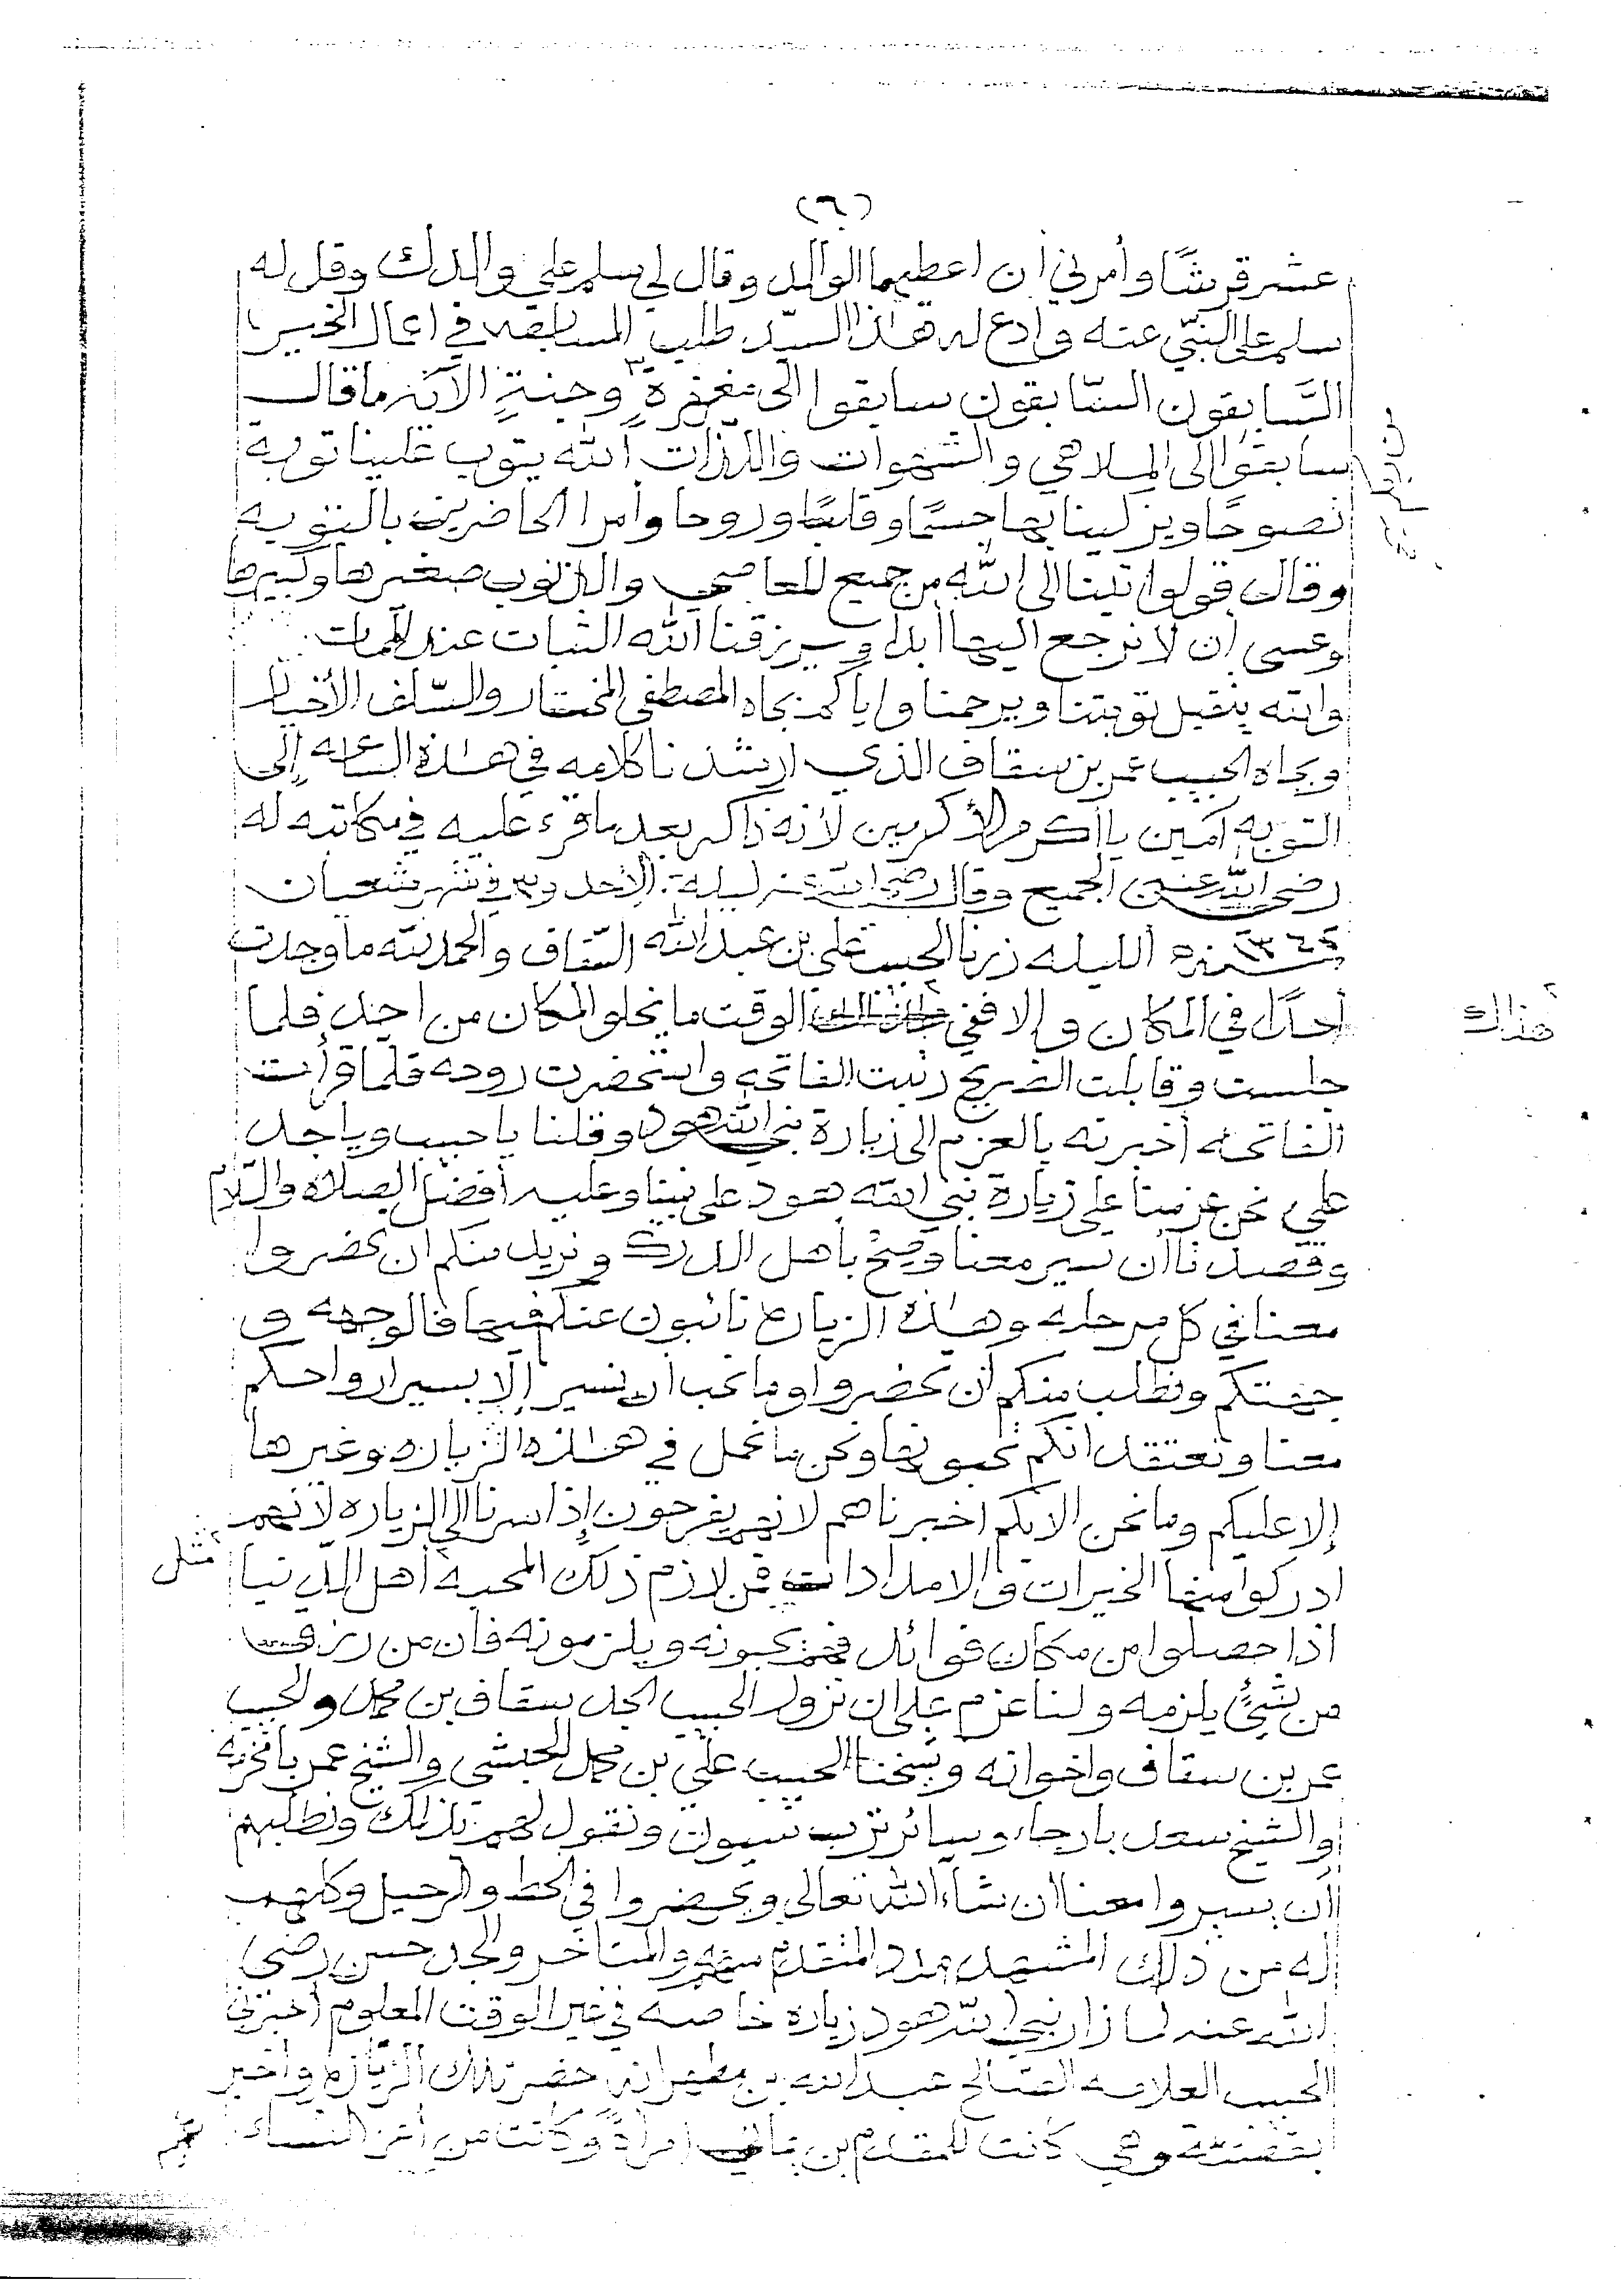 (٦)
عشر قرشًا وأمرني أن اعطيها الوالد وقال لي سلم على والدك وقل له
سلم على النبّي عنه وادع له هذا السيّد طلب المسابقه في اعمال الخير
السَّابقون السّابقون سابقوا إلى مغفرةٍ وجنةٍ الآيه ما قال
سابقوا إلى الملاهي والشهوات واللذّات الله يتوب علينا توبة
نصوحًا ويزكينا بها جسمًا وقلبًا وروحا وأمر الحاضرين بالتوبه
وقال قولوا تبنا إلى الله من جميع المعاصي والذنوب صغيرها وكبيرها
وعسى أن لا نرجع اليها أبدا ويرزقنا الله الثبات عند الممات
وانته يتقبل توبتنا ويرحمنا واياكم بجاه المصطفى المختار والسّلف الأخيار
وبجاه الحبيب عمر بن سقاف الذي ارشدنا كلامه في هذه الساعه إلى
التوبه آمين يا أكرم الأكرمين لأنه ذاكر بعد ما قرء عليه في مكاتبه له
رضي الله عنهم الجميع وقال رضي الله عنه ليلة الأحد و٣ في شهر شعبان
سنة الليله زرنا الحبيب علي بن عبد الله السّقاف والحمد لله ما وجدت
أحدًا في المكان والا ففي الوقت ما يخلو المكان من احد فلما
هذاك
جلست وقابلت الضريح رتبت الفاتحه واستحضرت روحه فلما قرأت
الفاتحه أخبرته بالعزم إلى زيارة نبي الله هود وقلنا يا حبيب ويا جد
علي نحن عزمنا على زيارة نبي الله هود على نبينا وعليه أفضل الصلاة والسّلام
وقصدنا أن تسير معنا وصح بأهل الدرك ونريد منكم ان تحضروا
معنا في كل مرحله وهذه الزياره نائبون عنكم فيها فالوجهه و
جهتكم ونطلب منكم أن تحضروا وما نحب أن نسير إلا بسير ارواحكم
معنا ونعتقد انكم تحبونها ونحن ما نحمل في هذه الزياره وغيرها
إلا عليكم وما نحن الا بكم اخبرناهم لانهم يفرحون إذا سرنا إلى الزياره لانهم
ادركوا منها الخيرات والامدادات فمن لازم ذلك المحبه أهل الدّنيا
مثل
اذا حصلوا من مكان فوائد فهم يحبونه ويلزمونه فان من رزق
من شيئ يلزمه ولنا عزم على ان نزور الحبيب الجد سقاف بن محمد والحبيب
عمر بن سقاف واخوانه وشيخنا الحبيب علي بن محمد الحبشي والشيخ عمر بامخرمه
والشيخ سعد بارجاء وسائر ترب سيون ونقول لهم بذلك ونطلبهم
أن يسيروا معنا ان شاء الله تعالى ويحضروا في الحط والرحيل وكلهم
له من ذلك المشهد مدد المتقدم منهم والمتاخر والجد حسن رضي
الله عنه لما زار نبي الله هود زياره خاصه في غير الوقت المعلوم أخبرني
الحبيب العلامه عبد الله بن حضر تلك الزياره واخبر
بقصته وهي كانت للمقدم بن امرأة وكانت من النساء